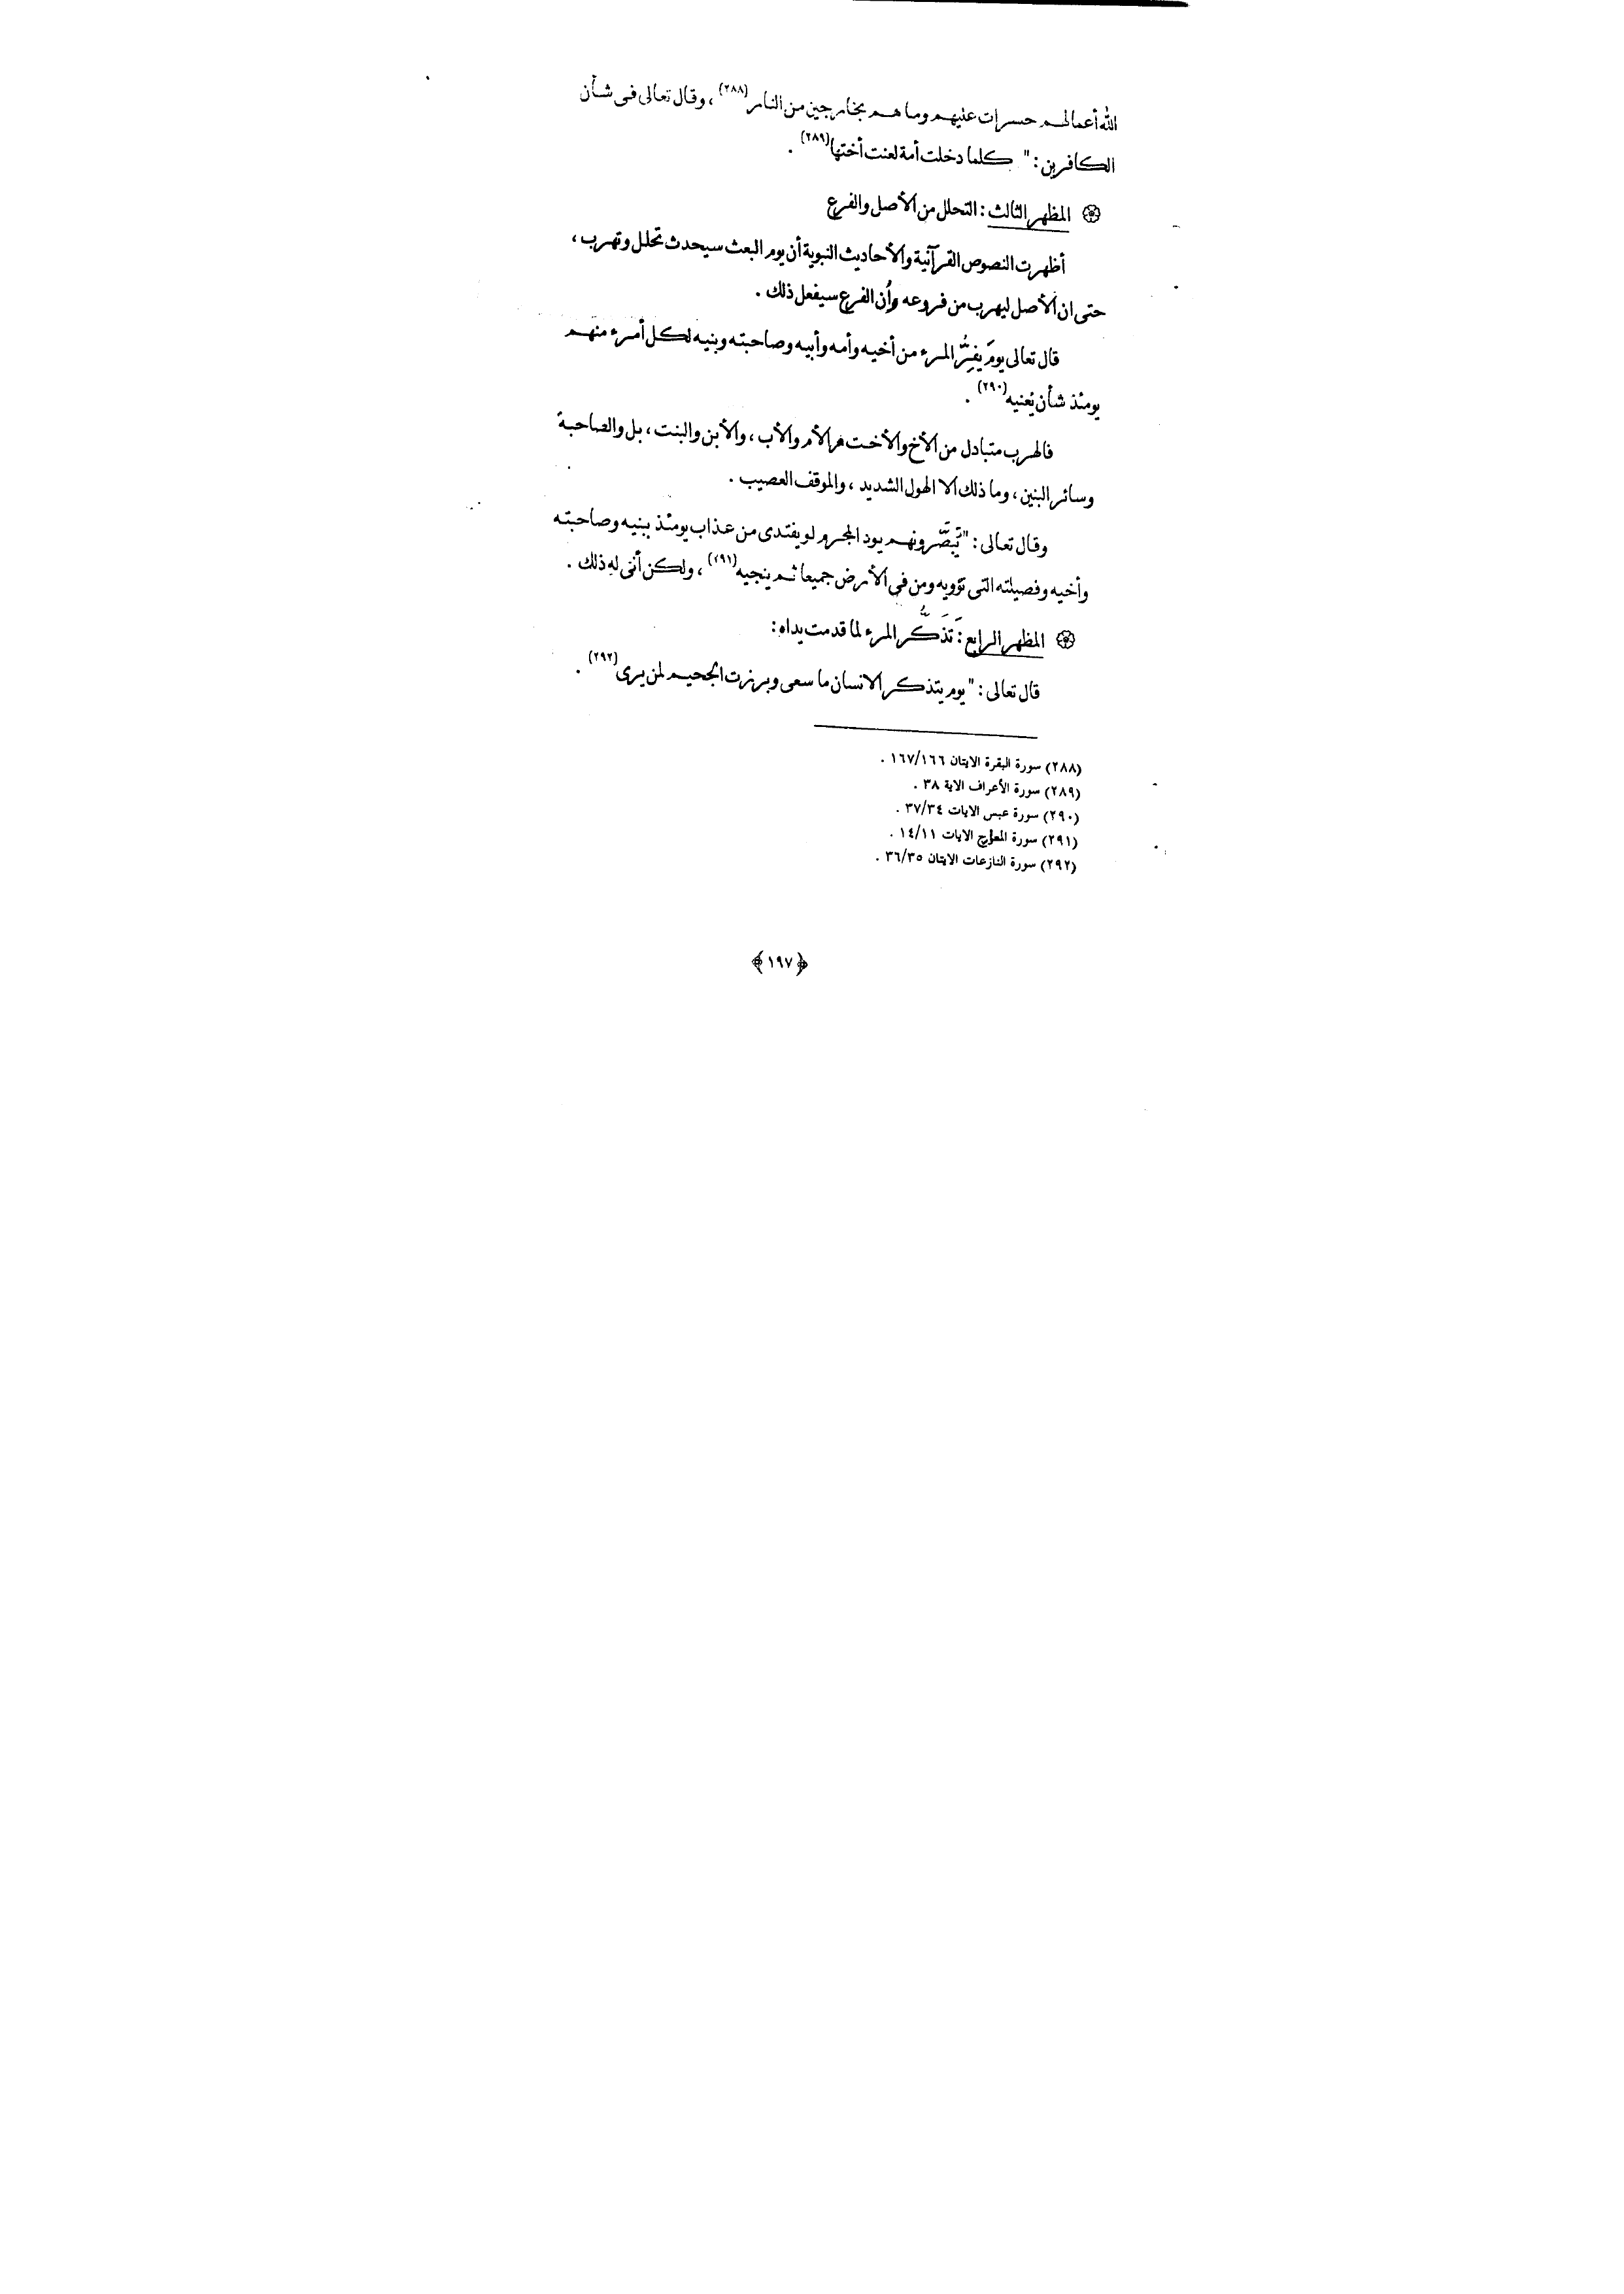 الله أعمالهم حسرات عليهم وما هم بخارجين من النار(٢٨٨) ، وقال تعالى فى شأن
الكافرين : " كلما دخلت أمة لعنت أختها(٢٨٩) .
المظهر الثالث : التحلل من الأصل والفرع
أظهرت النصوص القرآنية والأحاديث النبوية أن يوم البعث سيحدث تحلل وتهرب ،
حتى ان الأصل ليهرب من فروعه وأن الفرع سيفعل ذلك .
قال تعالى يومَ يفِرُّ المرء من أخيه وأمه وأبيه وصاحبته وبنيه لكل أمرء منهم
يومئذ شأن يُغنيه(٢٩٠) .
فالهرب متبادل من الأخ والأخت والأم والأب ، والأبن والبنت ، بل والصاحبة
وسائر البنين ، وما ذلك ألا الهول الشديد ، والموقف العصيب .
وقال تعالى : " يُبَصَّرونهم يود المجرم لو يفتدى من عذاب يومئذ ببنيه وصاحبته
وأخيه وفصيلته التى تؤويه ومن فى الأرض جميعا ثم ينجيه(٢٩١) ، ولكن أنى له ذلك .
المظهر الرابع : تَذَكُّر المرء لما قدمت يداه :
قال تعالى : " يوم يتذكر الانسان ما سعى وبرزت الجحيم لمن يرى(٢٩٢) .
(٢٨٨) سورة البقرة الايتان ١٦٧/١٦٦ .
(٢٨٩) سورة الأعراف الاية ٣٨ .
(٢٩٠) سورة عبس الايات ٣٧/٣٤ .
(٢٩١) سورة المعارج الايات ١٤/١١ .
(٢٩٢) سورة النازعات الايتان ٣٦/٣٥ .
﴿١٩٧﴾